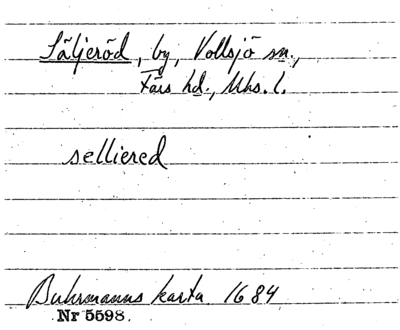 Säljeröd, by, Vollsjö sn.,
Färs hd., Mhs. l.
selliered
Buhrmanns karta 1684
Nr 5598.